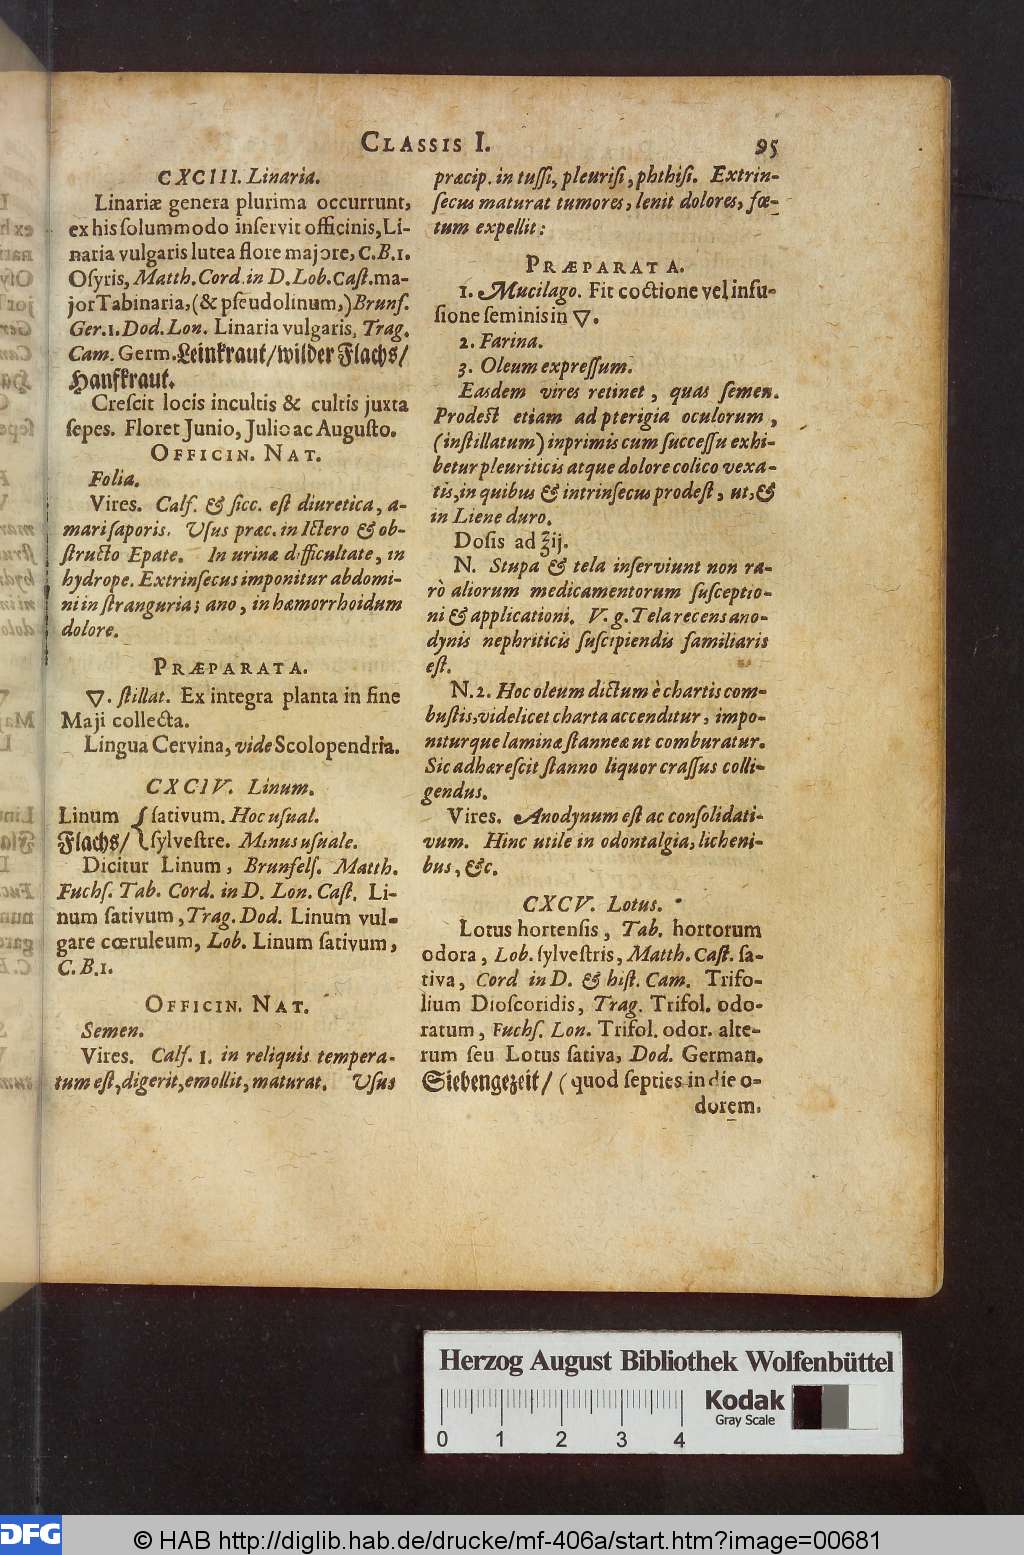 CLASSIS I. 95
CXCIII. Linaria.
Linariæ genera plurima occurrunt,
ex his ſolummodo inſervit officinis, Li-
naria vulgaris lutea flore majore, C.B.1.
Oſyris, Matth. Cord. in D. Lob. Caſt. ma-
jor Tabinaria, (& pſeudolinum,) Brunſ.
Ger.1. Dod. Lon. Linaria vulgaris, Trag.
Cam. Germ. Leinkraut/ wilder Flachs/
Hanfkraut.
Creſcit locis incultis & cultis juxta
ſepes. Floret Junio, Julio ac Auguſto.
OFFICIN. NAT.
Folia.
Vires. Calf. & ſicc. eſt diuretica, a-
mari ſaporis. Uſus præc. in Ictero & ob-
ſtructo Epate. In urinæ difficultate, in
hydrope. Extrinſecus imponitur abdomi-
ni in ſtranguria; ano, in hæmorrhoidum
dolore.
PRÆPARATA.
▽. ſtillat. Ex integra planta in fine
Maji collecta.
Lingua Cervina, vide Scolopendria.
CXCIV. Linum.
Linum { ſativum. Hoc uſual.
Flachs/ { ſylveſtre. Minus uſuale.
Dicitur Linum, Brunfelſ. Matth.
Fuchſ. Tab. Cord. in D. Lon. Caſt. Li-
num ſativum, Trag. Dod. Linum vul-
gare cœruleum, Lob. Linum ſativum,
C.B.1.
OFFICIN. NAT.
Semen.
Vires. Calf. 1. in reliquis tempera-
tum eſt, digerit, emollit, maturat. Uſus
præcip. in tuſſi, pleuriſi, phthiſi. Extrin-
ſecus maturat tumores, lenit dolores, fœ-
tum expellit:
PRÆPARATA.
1. Mucilago. Fit coctione vel infu-
ſione ſeminis in ▽.
2. Farina.
3. Oleum expreſſum.
Easdem vires retinet, quas ſemen.
Prodeſt etiam ad pterigia oculorum,
(inſtillatum) inprimis cum ſucceſſu exhi-
betur pleuriticis atque dolore colico vexa-
tis, in quibus & intrinſecus prodeſt, ut, &
in Liene duro.
Doſis ad ℥ij.
N. Stupa & tela inſerviunt non ra-
rò aliorum medicamentorum ſuſceptio-
ni & applicationi. V. g. Tela recens ano-
dynis nephriticis ſuſcipiendis familiaris
eſt.
N.2. Hoc oleum dictum è chartis com-
buſtis, videlicet charta accenditur, impo-
niturque laminæ ſtanneæ ut comburatur.
Sic adhæreſcit ſtanno liquor craſſus colli-
gendus.
Vires. Anodynum eſt ac conſolidati-
vum. Hinc utile in odontalgia, licheni-
bus, &c.
CXCV. Lotus.
Lotus hortenſis, Tab. hortorum
odora, Lob. ſylveſtris, Matth. Caſt. ſa-
tiva, Cord in D. & hiſt. Cam. Trifo-
lium Dioſcoridis, Trag. Trifol. odo-
ratum, Fuchſ. Lon. Trifol. odor. alte-
rum ſeu Lotus ſativa, Dod. German.
Siebengezeit/ (quod ſepties in die o-
dorem.
Herzog August Bibliothek Wolfenbüttel
Kodak
Gray Scale
0 1 2 3 4
DFG
© HAB http://diglib.hab.de/drucke/mf-406a/start.htm?image=00681